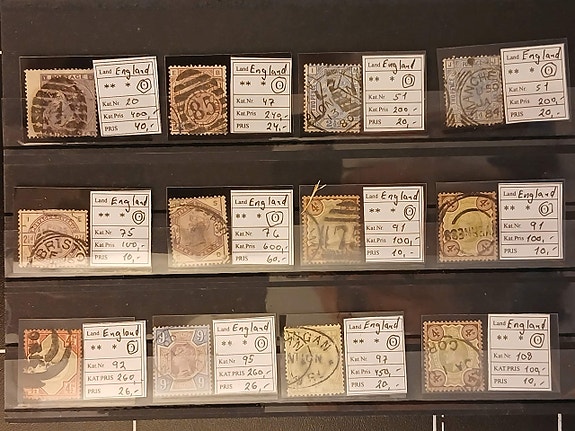 Land England
** * O
Kat Nr 20
Kat Pris 400,-
PRIS 40,-
Land England
** * O
Kat Nr 47
Kat Pris 240,-
PRIS 24,-
Land England
** * O
Kat Nr 51
Kat Pris 200,-
PRIS 20,-
Land England
** * O
Kat Nr 51
Kat Pris 200,-
PRIS 20,-
Land England
** * O
Kat Nr 75
Kat Pris 100,-
PRIS 10,-
Land England
** * O
Kat Nr 76
Kat Pris 600,-
PRIS 60,-
Land England
** * O
Kat Nr 91
Kat Pris 100,-
PRIS 10,-
Land England
** * O
Kat Nr 91
Kat Pris 100,-
PRIS 10,-
Land England
** * O
Kat Nr 92
KAT.PRIS 260,-
PRIS 26,-
Land England
** * O
Kat Nr 95
KAT.PRIS 260,-
PRIS 26,-
Land England
** * O
Kat Nr 97
Kat Pris 450,-
PRIS 20,-
Land England
** * O
Kat Nr 108
KAT.PRIS 100,-
PRIS 10,-
85
BRISTO